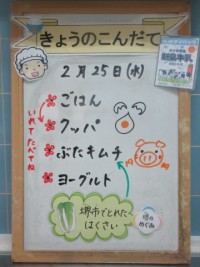 きょうのこんだて
2月25日(水)
ごはん
クッパ
ぶたキムチ
ヨーグルト
いれてたべてね
堺市でとれた
はくさい
堺のめぐみ